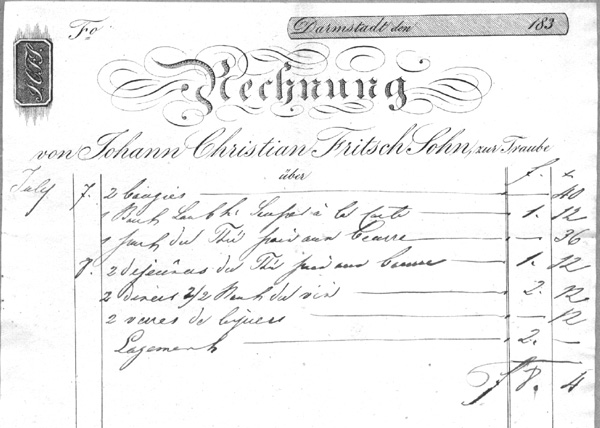 Fo
Darmstadt den 183
Rechnung
von Johann Christian Fritsch Sohn, zur Traube
über
f. x
July 7. 2 bougies — 40
1 à la Carte 1. 12
1 du Thé pain aux beurre — 36
8. 2 dejeûners du Thé pain aux beurre 1. 12
2 diners 2/2 du vin 2. 12
2 verres de liqueurs — 12
Logement 2. —
f 8. 4